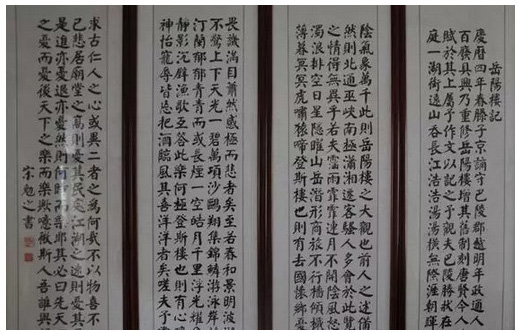 岳陽樓記
慶曆四年春滕子京謫守巴陵郡越明年政通人
百廢具興乃重修岳陽樓增其舊制刻唐賢今人
賦於其上屬予作文以記之予觀夫巴陵勝狀在
庭一湖銜遠山吞長江浩浩湯湯橫無際涯朝暉
陰氣象萬千此則岳陽樓之大觀也前人之述備
然則北通巫峽南極瀟湘遷客騷人多會於此覽
之情得無異乎若夫霪雨霏霏連月不開陰風怒
濁浪排空日星隱曜山岳潛形商旅不行檣傾楫
薄暮冥冥虎嘯猿啼登斯樓也則有去國懷鄉憂
畏譏滿目蕭然感極而悲者矣至若春和景明波瀾
不驚上下天光一碧萬頃沙鷗翔集錦鱗游泳岸芷
汀蘭郁郁青青而或長煙一空皓月千里浮光耀金
靜影沉璧漁歌互答此樂何極登斯樓也則有心曠
神怡寵辱皆忘把酒臨風其喜洋洋者矣嗟夫予嘗
求古仁人之心或異二者之為何哉不以物喜不
己悲居廟堂之高則憂其民處江湖之遠則憂其
是進亦憂退亦憂然則何時而樂耶其必曰先天
之憂而憂後天下之樂而樂歟噫微斯人吾誰與
宋勉之書